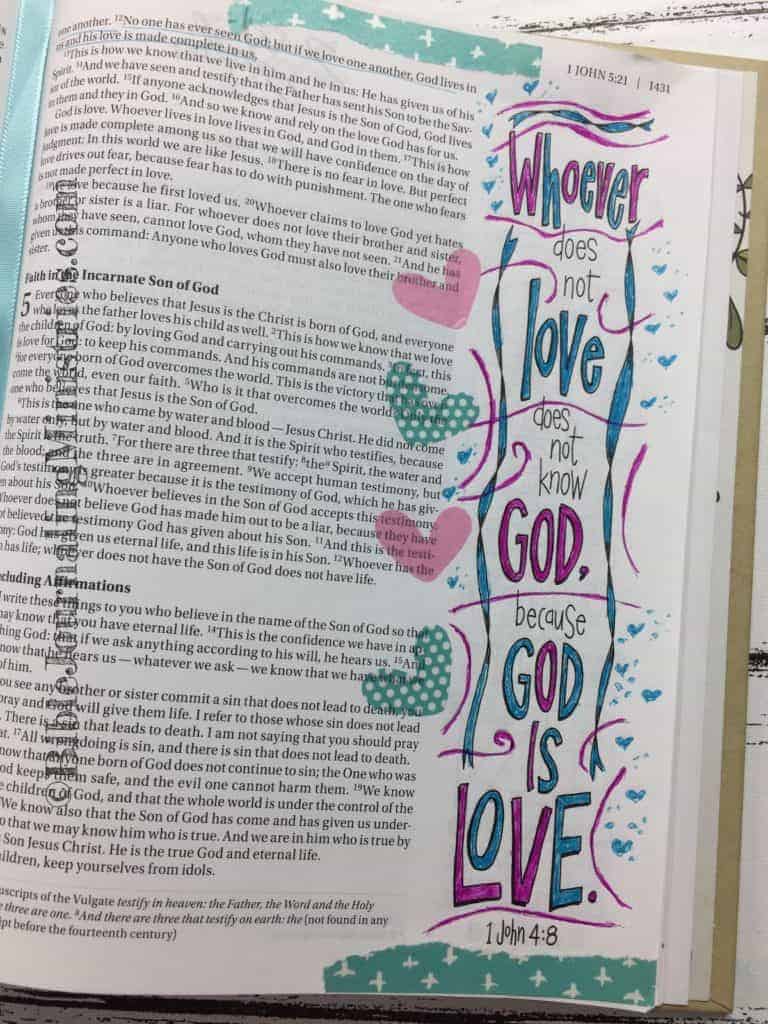 1 JOHN 5:21 | 1431
one another. 12No one has ever seen God; but if we love one another, God lives in
us and his love is made complete in us.
13This is how we know that we live in him and he in us: He has given us of his
Spirit. 14And we have seen and testify that the Father has sent his Son to be the Sav-
ior of the world. 15If anyone acknowledges that Jesus is the Son of God, God lives
in them and they in God. 16And so we know and rely on the love God has for us.
God is love. Whoever lives in love lives in God, and God in them. 17This is how
love is made complete among us so that we will have confidence on the day of
judgment: In this world we are like Jesus. 18There is no fear in love. But perfect
love drives out fear, because fear has to do with punishment. The one who fears
is not made perfect in love.
19We love because he first loved us. 20Whoever claims to love God yet hates
a brother or sister is a liar. For whoever does not love their brother and sister,
whom they have seen, cannot love God, whom they have not seen. 21And he has
given us this command: Anyone who loves God must also love their brother and
sister.
Faith in the Incarnate Son of God
5 Everyone who believes that Jesus is the Christ is born of God, and everyone
who loves the father loves his child as well. 2This is how we know that we love
the children of God: by loving God and carrying out his commands. 3In fact, this
is love for God: to keep his commands. And his commands are not burdensome,
4for everyone born of God overcomes the world. This is the victory that has over-
come the world, even our faith. 5Who is it that overcomes the world? Only the
one who believes that Jesus is the Son of God.
6This is the one who came by water and blood — Jesus Christ. He did not come
by water only, but by water and blood. And it is the Spirit who testifies, because
the Spirit is the truth. 7For there are three that testify: 8the Spirit, the water and
the blood; and the three are in agreement. 9We accept human testimony, but
God's testimony is greater because it is the testimony of God, which he has giv-
en about his Son. 10Whoever believes in the Son of God accepts this testimony.
Whoever does not believe God has made him out to be a liar, because they have
not believed the testimony God has given about his Son. 11And this is the testi-
mony: God has given us eternal life, and this life is in his Son. 12Whoever has the
Son has life; whoever does not have the Son of God does not have life.
cluding Affirmations
I write these things to you who believe in the name of the Son of God so that
may know that you have eternal life. 14This is the confidence we have in ap-
hing God: that if we ask anything according to his will, he hears us. 15And
now that he hears us — whatever we ask — we know that we have what we
of him.
ou see any brother or sister commit a sin that does not lead to death, you
pray and God will give them life. I refer to those whose sin does not lead
. There is a sin that leads to death. I am not saying that you should pray
at. 17All wrongdoing is sin, and there is sin that does not lead to death.
now that anyone born of God does not continue to sin; the One who was
od keeps them safe, and the evil one cannot harm them. 19We know
e children of God, and that the whole world is under the control of the
We know also that the Son of God has come and has given us under-
o that we may know him who is true. And we are in him who is true by
Son Jesus Christ. He is the true God and eternal life.
ildren, keep yourselves from idols.
uscripts of the Vulgate testify in heaven: the Father, the Word and the Holy
e three are one. 8And there are three that testify on earth: the (not found in any
ipt before the fourteenth century)
Whoever
does
not
love
does
not
know
GOD,
because
GOD
IS
LOVE.
1 John 4:8
©BibleJournalingMinistries.com